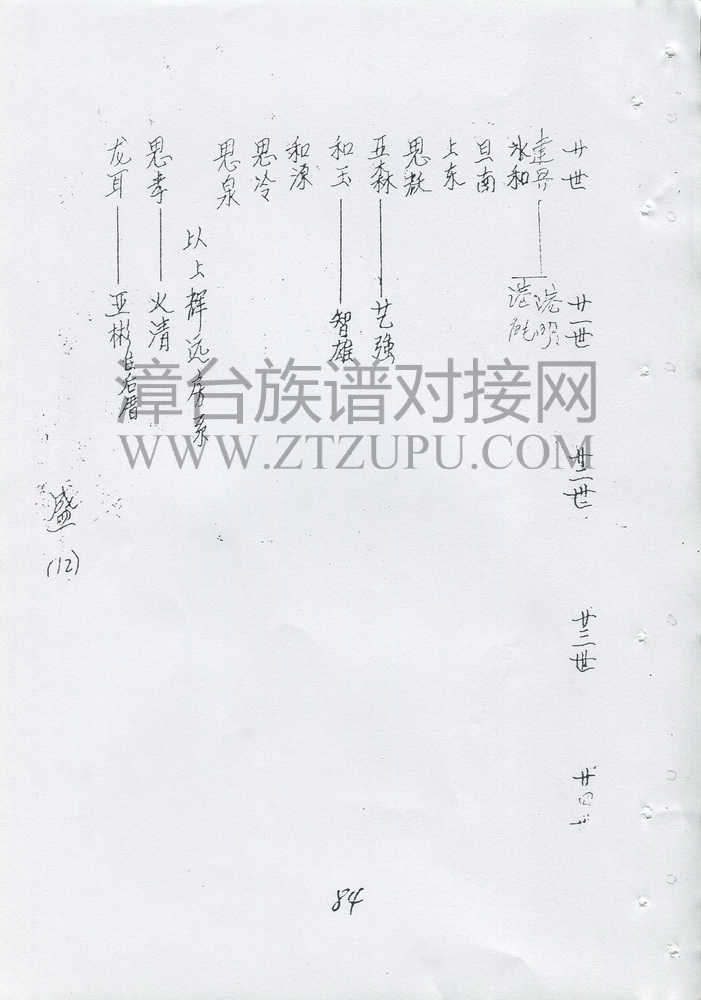 廿世
廿一世
廿二世
廿三世
廿四世
建
水和
旦南
上东
思
亚森 艺强
和玉 智雄
和源
思冷
思泉
以上辉远房系
思孝 火清
龙耳 亚彬
盛
(12)
84
漳台族谱对接网
WWW.ZTZUPU.COM